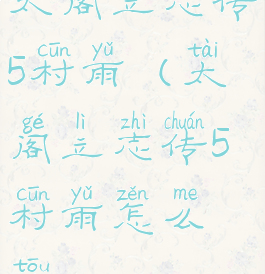 太阁立志传
cūn yǔ tài
5村雨（太
gé lì zhì chuán
阁立志传5
cūn yǔ zěn me
村雨怎么
tōu